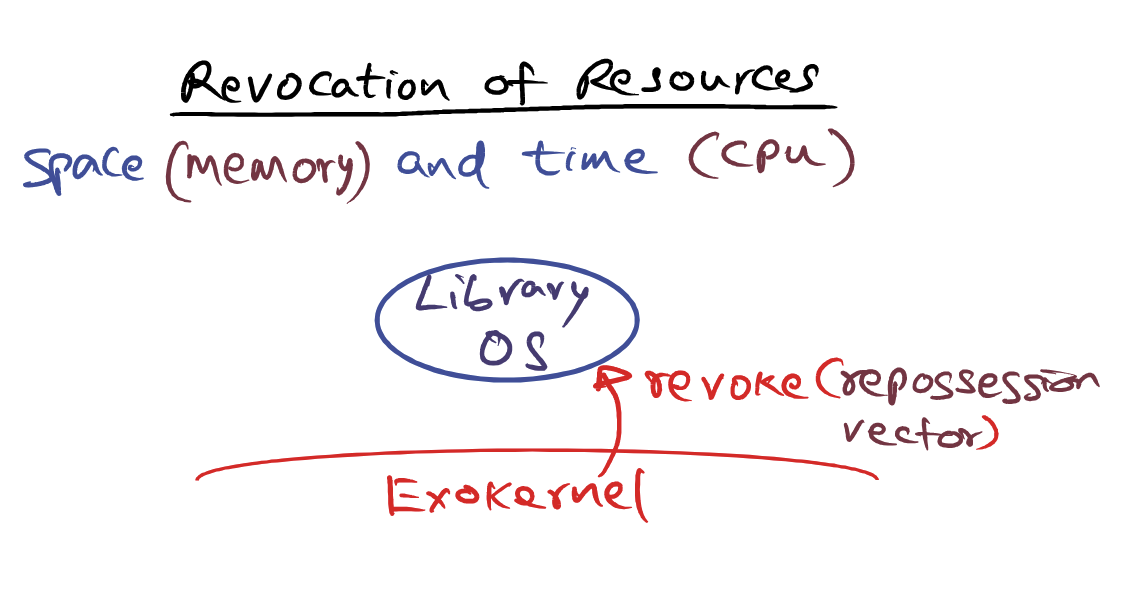 Revocation of Resources
space (memory) and time (cpu)
Library
OS
revoke (repossession
vector)
Exokernel